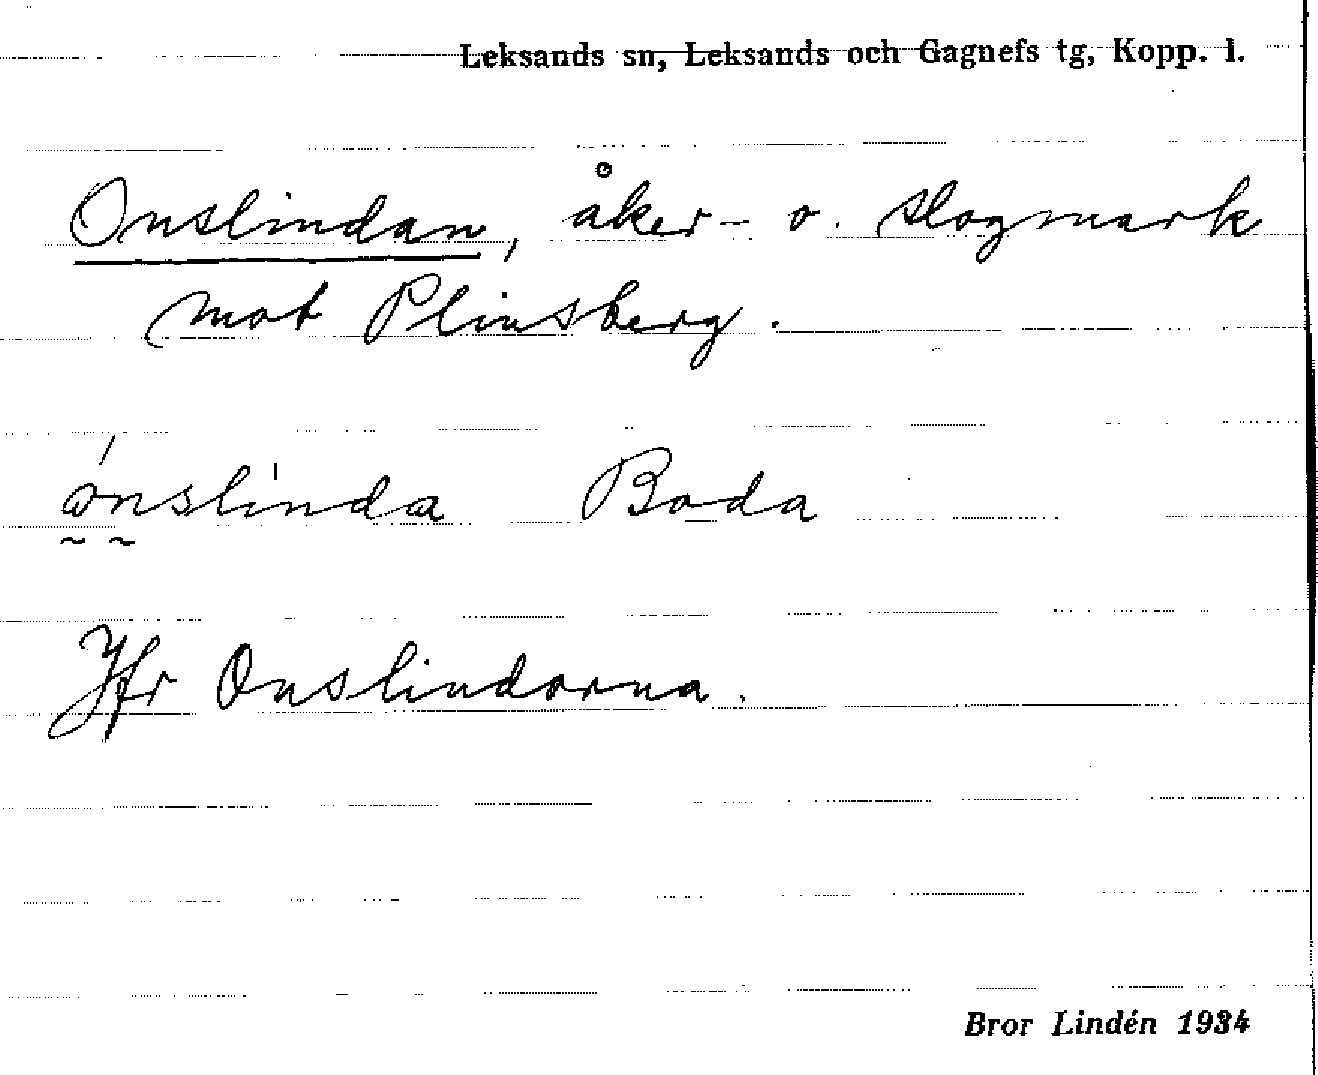 Leksands sn, Leksands och Gagnefs tg, Kopp. l.
Onslindan, åker- o. slogmark
mot Plinsberg.
ònslinda Boda
Jfr Onslindorna.
Bror Lindén 1934